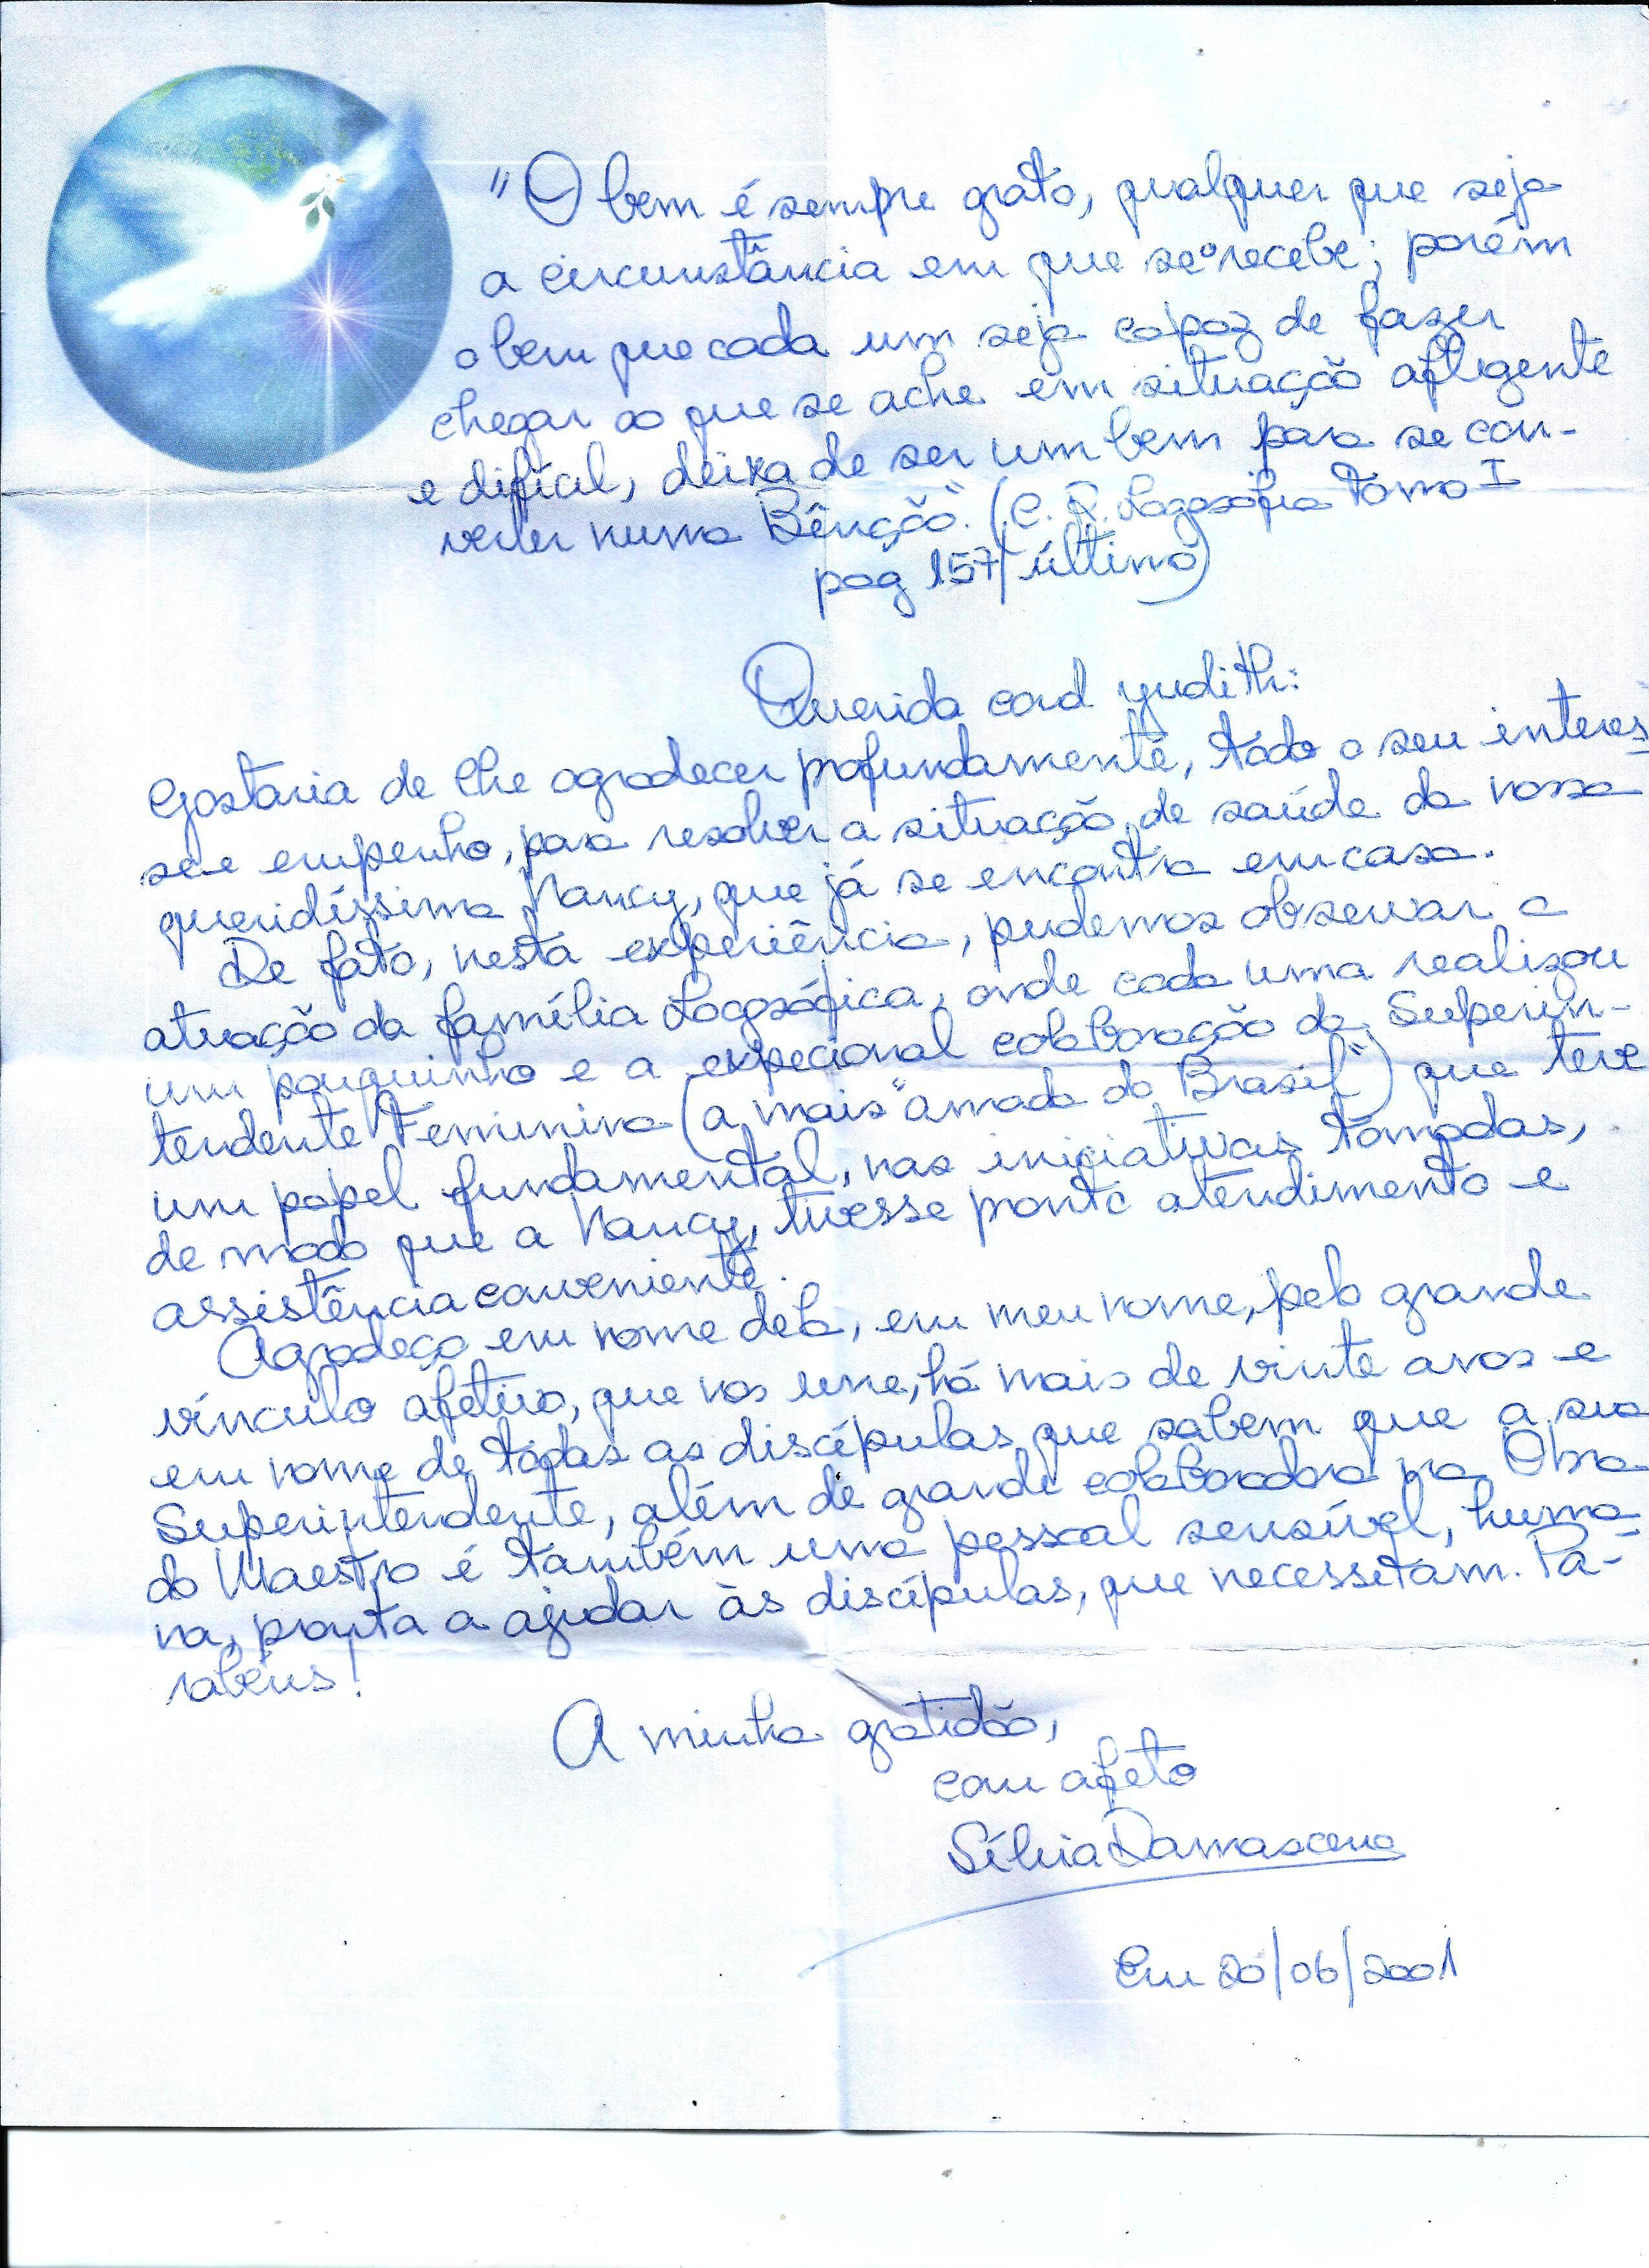 "O bem é sempre grato, qualquer que seja
a circunstância em que se o recebe; porém
o bem que cada um seja capaz de fazer
chegar ao que se ache em situação afligente
e difícil, deixa de ser um bem para se con-
verter numa Bênção". (C. R. Logosofia Tomo I
pag 157/último)
Querida cond Yudith:
Gostaria de lhe agradecer profundamente, todo o seu interes-
se e empenho, para resolver a situação, de saúde da nossa
queridíssima Nancy, que já se encontra em casa.
De fato, nesta experiência, pudemos observar a
atuação da família Logosófica, onde cada uma realizou
um pouquinho e a expecional colaboração da Superin-
tendente Feminina (a mais "amada do Brasil") que teve
um papel fundamental, nas iniciativas tomadas,
de modo que a Nancy, tivesse pronto atendimento e
assistência conveniente.
Agradeço em nome dela, em meu nome, pelo grande
vínculo afetivo, que nos une, há mais de vinte anos e
em nome de todas as discípulas que sabem que a sua
Superintendente, além de grande colaboradora na Obra
do Maestro é também uma pessoal sensível, huma-
na, pronta a ajudar às discípulas, que necessitam. Pa-
rabéns!
A minha gratidão,
com afeto
Sílvia Damasceno
Em 20/06/2001